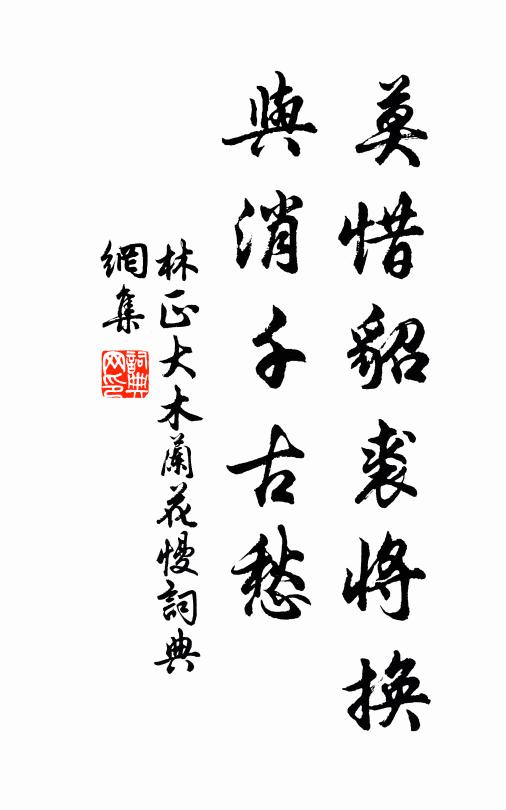 莫惜貂裘將換
與消千古愁
林正大木蘭花慢詞典
網集
詞典網印